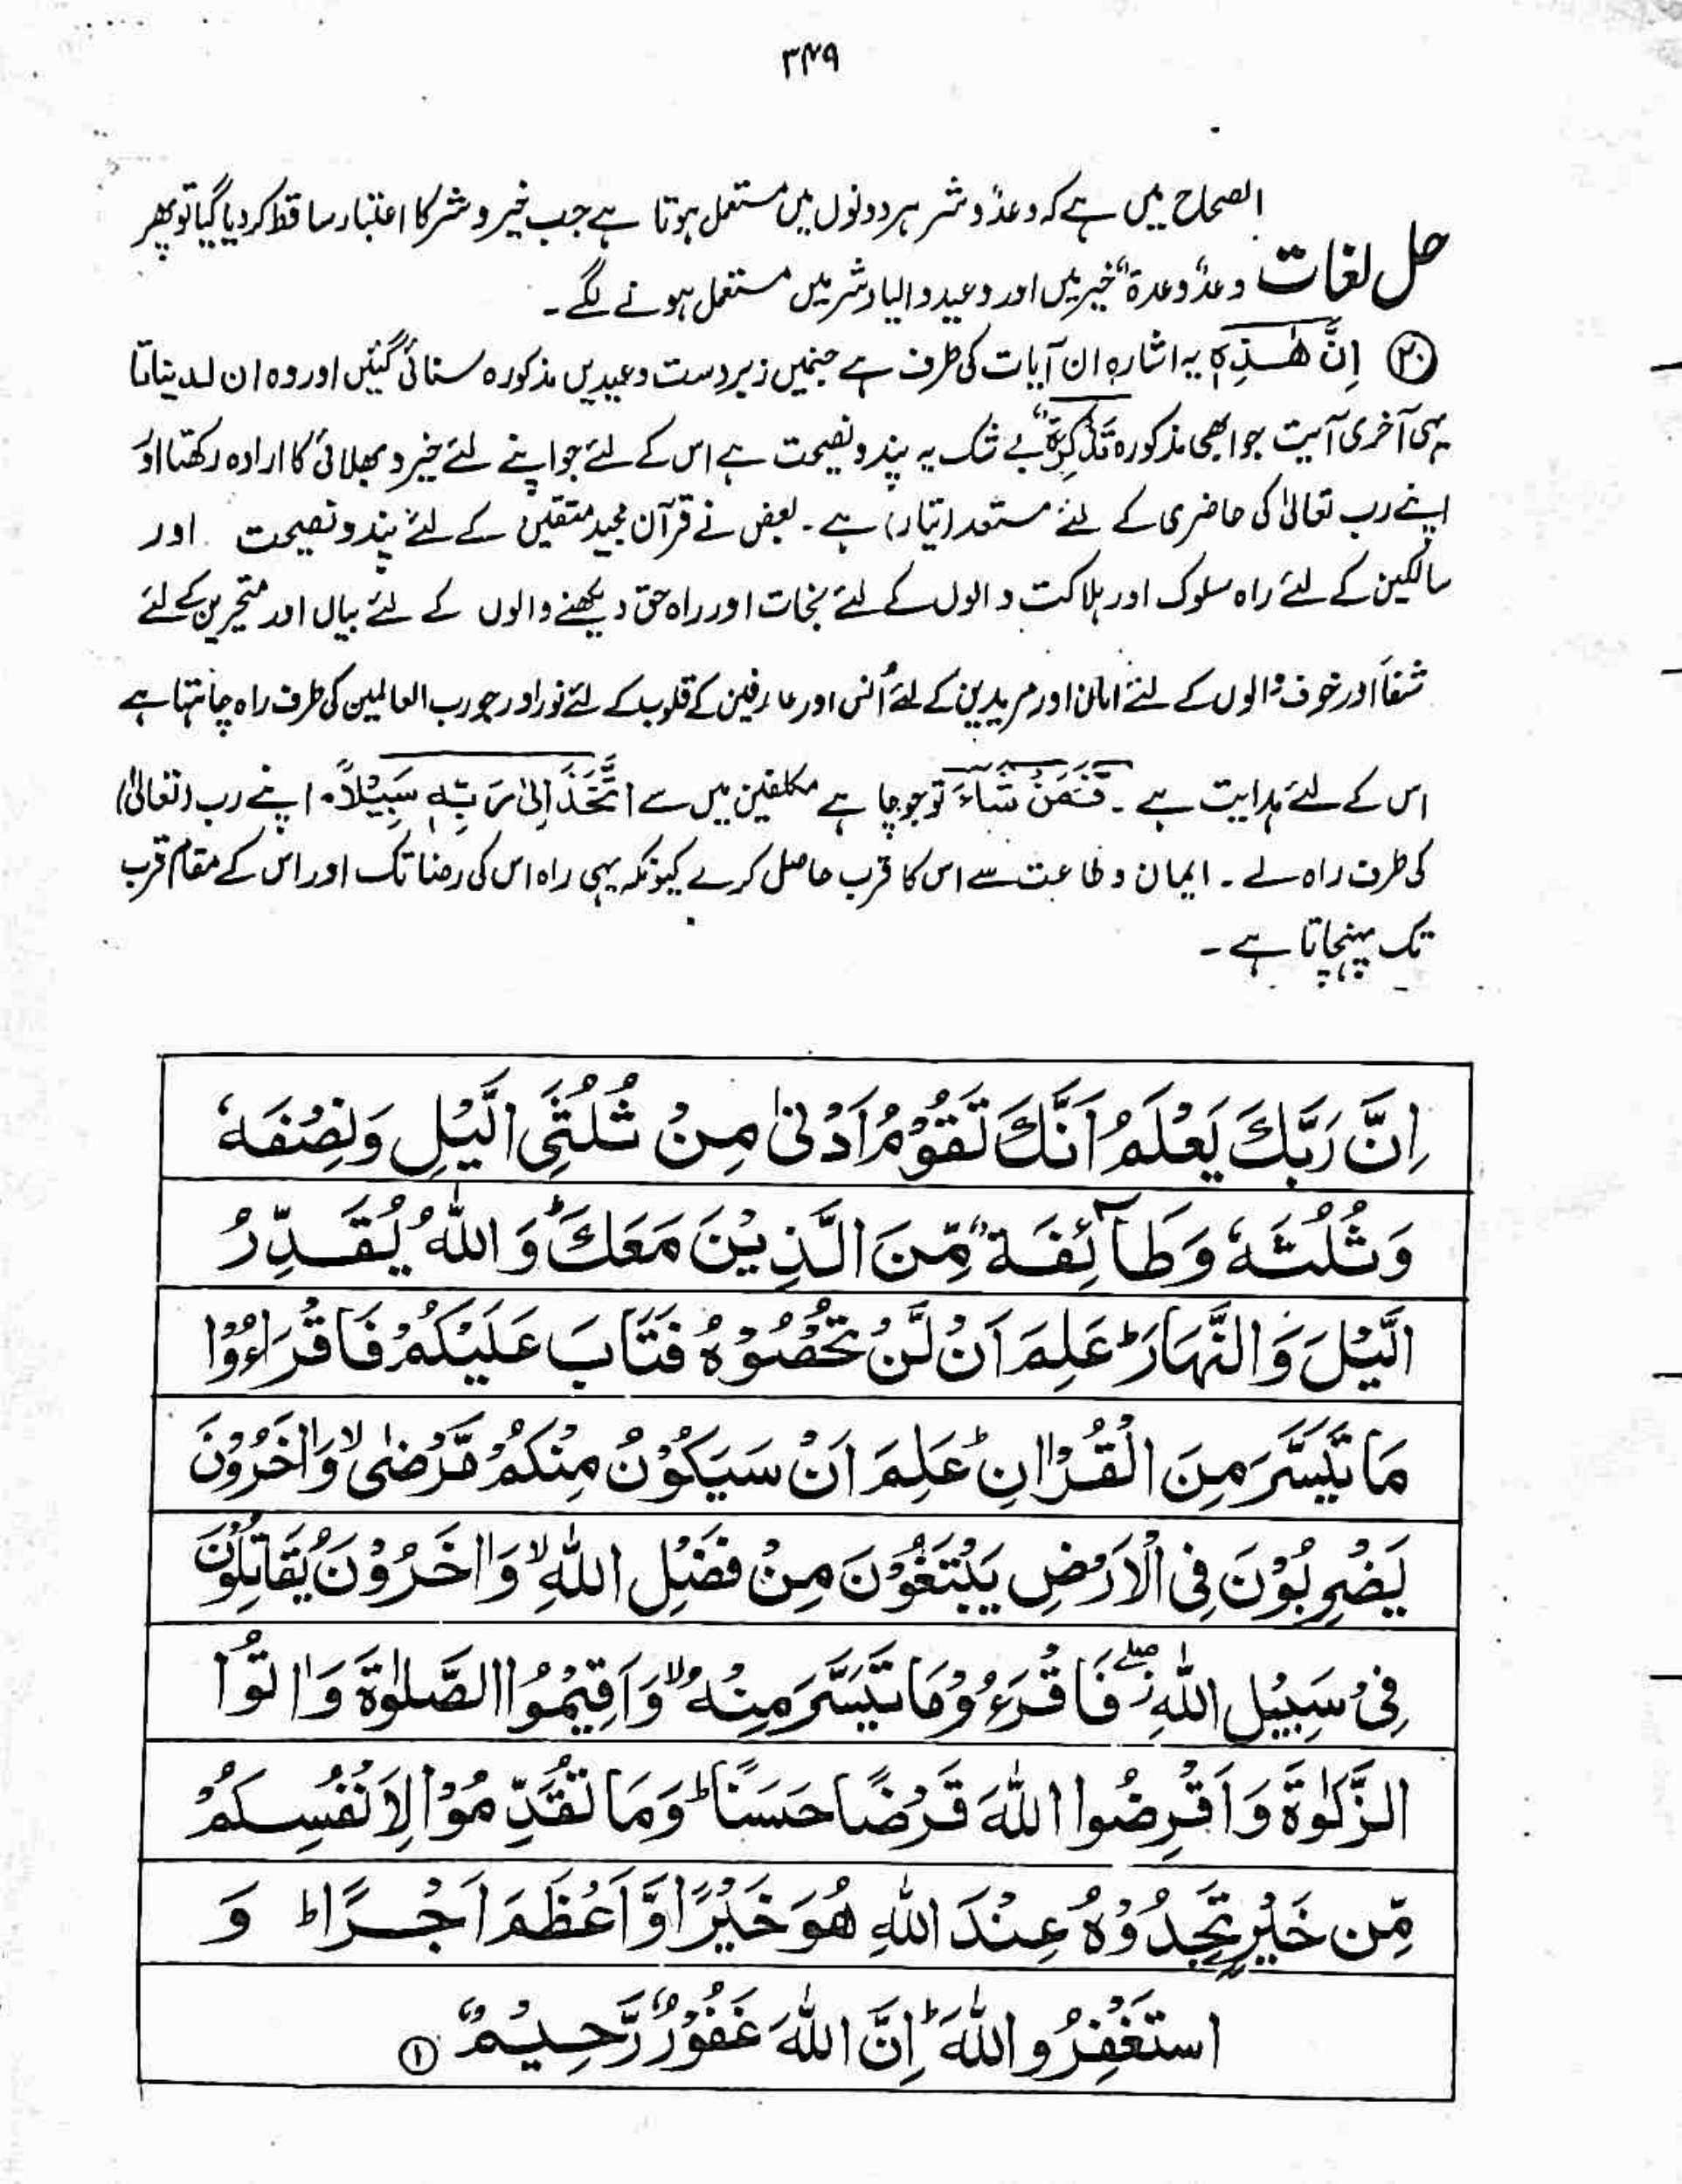 ۳۴۹
الصحاح میں ہے کہ وعدٌ وشر ہر دونوں میں مستعمل ہوتا ہے جب خیر و شر کا اعتبار ساقط کر دیا گیا تو پھر
حل لغات وعدٌ وعدۃٌ خیر میں اور وعید و ایعاد شر میں مستعمل ہونے لگے۔
اِنَّ هٰذِهٖ یہ اشارہ ان آیات کی طرف ہے جنمیں زبردست وعیدیں مذکورہ سنائی گئیں اور وہ ان لدینا تا
یہی آخری آیت جو ابھی مذکورہ تَذْكِرَةٌ بے شک یہ پند و نصیحت ہے اس کے لئے جو اپنے لئے خیر و بھلائی کا ارادہ رکھتا اور
اپنے رب تعالیٰ کی حاضری کے لئے مستعد (تیار) ہے۔ بعض نے قرآن مجید متقین کے لئے پند و نصیحت اور
سالکین کے لئے راہ سلوک اور ہلاکت والوں کے لئے نجات اور راہ حق دیکھنے والوں کے لئے بیاں اور متحیرین کے لئے
شفاً اور خوف والوں کے لئے امان اور مریدین کے لئے اُنس اور عارفین کے قلوب کے لئے نور اور جو رب العالمین کی طرف راہ چاہتا ہے
اس کے لئے ہدایت ہے۔ فَمَنْ شَآءَ تو جو چاہے مکلفین میں سے اتَّخَذَ اِلٰى رَبِّهٖ سَبِيْلاً۔ اپنے رب (تعالیٰ)
کی طرف راہ لے۔ ایمان و طاعت سے اس کا قرب حاصل کرے کیونکہ یہی راہ اس کی رضا تک اور اس کے مقام قرب
تک پہنچاتا ہے۔
اِنَّ رَبَّكَ يَعْلَمُ اَنَّكَ تَقُوْمُ اَدْنٰى مِنْ ثُلُثَيِ الَّيْلِ وَنِصْفَهٗ
وَثُلُثَهٗ وَطَآئِفَةٌ مِّنَ الَّذِيْنَ مَعَكَ ؕ وَاللّٰهُ يُقَدِّرُ
الَّيْلَ وَالنَّهَارَ ؕ عَلِمَ اَنْ لَّنْ تُحْصُوْهُ فَتَابَ عَلَيْكُمْ فَاقْرَءُوْا
مَا تَيَسَّرَ مِنَ الْقُرْاٰنِ ؕ عَلِمَ اَنْ سَيَكُوْنُ مِنْكُمْ مَّرْضٰى ۙ وَاٰخَرُوْنَ
يَضْرِبُوْنَ فِى الْاَرْضِ يَبْتَغُوْنَ مِنْ فَضْلِ اللّٰهِ ۙ وَاٰخَرُوْنَ يُقَاتِلُوْنَ
فِىْ سَبِيْلِ اللّٰهِ ۖ فَاقْرَءُوْ مَا تَيَسَّرَ مِنْهُ ۙ وَاَقِيْمُوا الصَّلٰوةَ وَاٰتُوا
الزَّكٰوةَ وَاَقْرِضُوا اللّٰهَ قَرْضًا حَسَنًا ؕ وَمَا تُقَدِّمُوْا لِاَنْفُسِكُمْ
مِّنْ خَيْرٍ تَجِدُوْهُ عِنْدَ اللّٰهِ هُوَ خَيْرًا وَّاَعْظَمَ اَجْرًا ؕ وَ
اسْتَغْفِرُوا اللّٰهَ ؕ اِنَّ اللّٰهَ غَفُوْرٌ رَّحِيْمٌ ۝۱